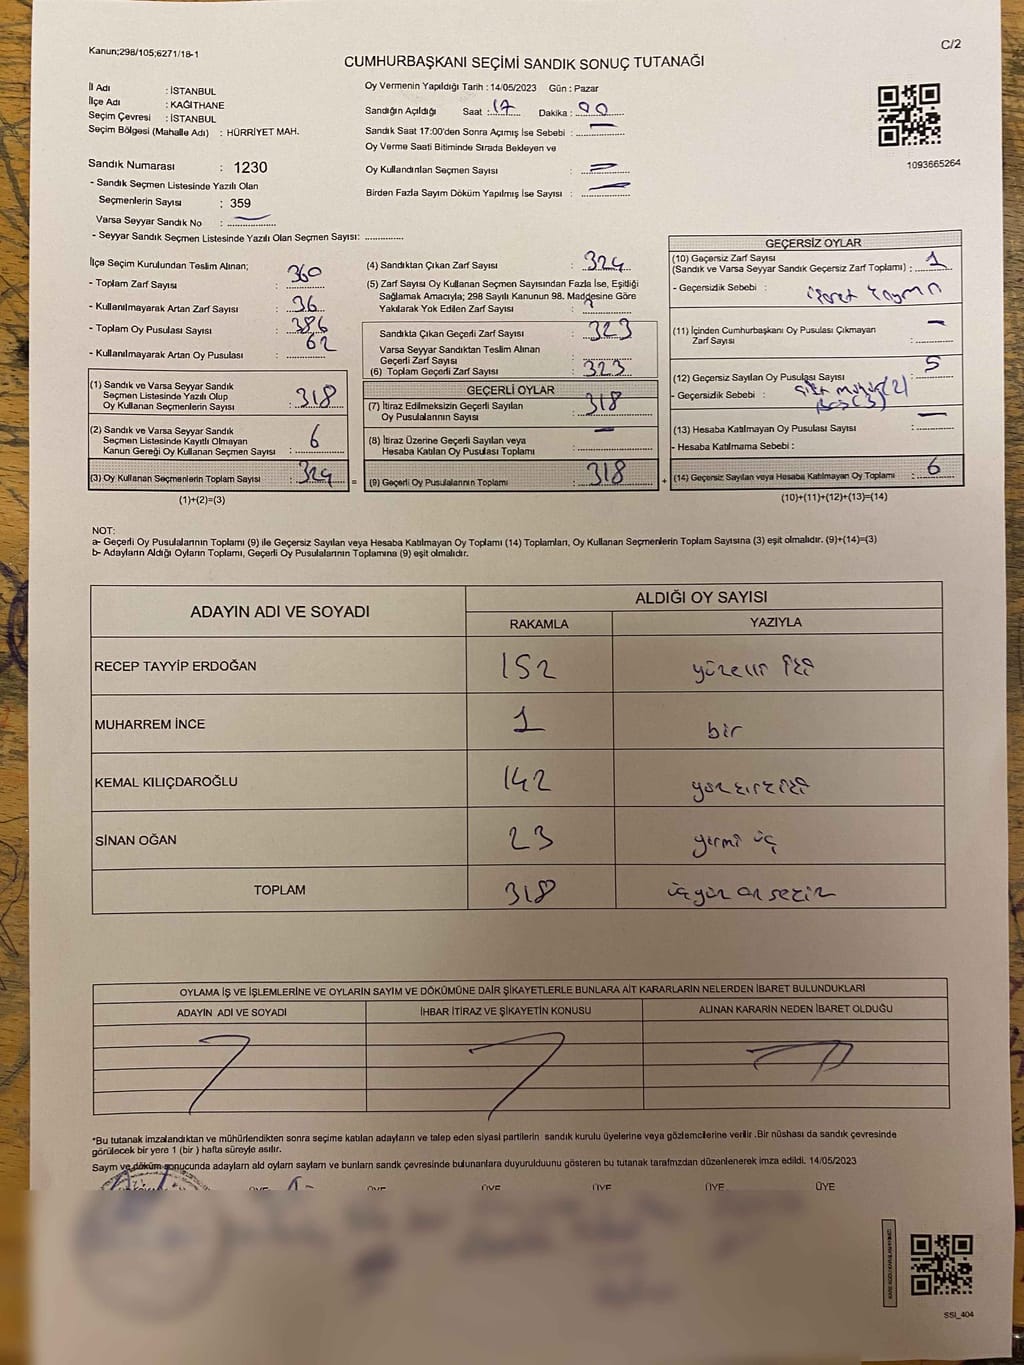 Kanun;298/105;6271/18-1
C/2
CUMHURBAŞKANI SEÇİMİ SANDIK SONUÇ TUTANAĞI
İl Adı : İSTANBUL
İlçe Adı : KAĞITHANE
Seçim Çevresi : İSTANBUL
Seçim Bölgesi (Mahalle Adı) : HÜRRİYET MAH.
Sandık Numarası : 1230
- Sandık Seçmen Listesinde Yazılı Olan
Seçmenlerin Sayısı : 359
Varsa Seyyar Sandık No :
- Seyyar Sandık Seçmen Listesinde Yazılı Olan Seçmen Sayısı:
Oy Vermenin Yapıldığı Tarih : 14/05/2023 Gün : Pazar
Sandığın Açıldığı Saat : 17 Dakika : 00
Sandık Saat 17:00'den Sonra Açımış İse Sebebi : —
Oy Verme Saati Bitiminde Sırada Bekleyen ve
Oy Kullandırılan Seçmen Sayısı :
Birden Fazla Sayım Döküm Yapılmış İse Sayısı :
1093665264
İlçe Seçim Kurulundan Teslim Alınan;
- Toplam Zarf Sayısı : 360
- Kullanılmayarak Artan Zarf Sayısı : 36
- Toplam Oy Pusulası Sayısı : 386
- Kullanılmayarak Artan Oy Pusulası : 62
(1) Sandık ve Varsa Seyyar Sandık
Seçmen Listesinde Yazılı Olup
Oy Kullanan Seçmenlerin Sayısı : 318
(2) Sandık ve Varsa Seyyar Sandık
Seçmen Listesinde Kayıtlı Olmayan
Kanun Gereği Oy Kullanan Seçmen Sayısı : 6
(3) Oy Kullanan Seçmenlerin Toplam Sayısı : 324
(1)+(2)=(3)
(4) Sandıktan Çıkan Zarf Sayısı : 324
(5) Zarf Sayısı Oy Kullanan Seçmen Sayısından Fazla İse, Eşitliği
Sağlamak Amacıyla; 298 Sayılı Kanunun 98. Maddesine Göre
Yakılarak Yok Edilen Zarf Sayısı :
Sandıkta Çıkan Geçerli Zarf Sayısı : 323
Varsa Seyyar Sandıktan Teslim Alınan
Geçerli Zarf Sayısı :
(6) Toplam Geçerli Zarf Sayısı : 323
GEÇERLİ OYLAR
(7) İtiraz Edilmeksizin Geçerli Sayılan
Oy Pusulalarının Sayısı : 318
(8) İtiraz Üzerine Geçerli Sayılan veya
Hesaba Katılan Oy Pusulası Toplamı : —
= (9) Geçerli Oy Pusulalarının Toplamı : 318
GEÇERSİZ OYLAR
(10) Geçersiz Zarf Sayısı
(Sandık ve Varsa Seyyar Sandık Geçersiz Zarf Toplamı) : 1
- Geçersizlik Sebebi : işaret
(11) İçinden Cumhurbaşkanı Oy Pusulası Çıkmayan
Zarf Sayısı : —
(12) Geçersiz Sayılan Oy Pusulası Sayısı : 5
- Geçersizlik Sebebi : çift mühür (2)
Boş (3)
(13) Hesaba Katılmayan Oy Pusulası Sayısı : —
- Hesaba Katılmama Sebebi :
+ (14) Geçersiz Sayılan veya Hesaba Katılmayan Oy Toplamı : 6
(10)+(11)+(12)+(13)=(14)
NOT:
a- Geçerli Oy Pusulalarının Toplamı (9) ile Geçersiz Sayılan veya Hesaba Katılmayan Oy Toplamı (14) Toplamları, Oy Kullanan Seçmenlerin Toplam Sayısına (3) eşit olmalıdır. (9)+(14)=(3)
b- Adayların Aldığı Oyların Toplamı, Geçerli Oy Pusulalarının Toplamına (9) eşit olmalıdır.
ADAYIN ADI VE SOYADI
ALDIĞI OY SAYISI
RAKAMLA YAZIYLA
RECEP TAYYİP ERDOĞAN 152 yüzelli iki
MUHARREM İNCE 1 bir
KEMAL KILIÇDAROĞLU 142 yüz kırk iki
SİNAN OĞAN 23 yirmi üç
TOPLAM 318 üçyüz on sekiz
OYLAMA İŞ VE İŞLEMLERİNE VE OYLARIN SAYIM VE DÖKÜMÜNE DAİR ŞİKAYETLERLE BUNLARA AİT KARARLARIN NELERDEN İBARET BULUNDUKLARI
ADAYIN ADI VE SOYADI İHBAR İTİRAZ VE ŞİKAYETİN KONUSU ALINAN KARARIN NEDEN İBARET OLDUĞU
*Bu tutanak imzalandıktan ve mühürlendikten sonra seçime katılan adayların ve talep eden siyasi partilerin sandık kurulu üyelerine veya gözlemcilerine verilir .Bir nüshası da sandık çevresinde
görülecek bir yere 1 (bir ) hafta süreyle asılır.
Sayım ve döküm sonucunda adayların ald oyların sayıları ve bunların sandk çevresinde bulunanlara duyurulduunu gösteren bu tutanak tarafımzdan düzenlenerek imza edildi. 14/05/2023
ÜYE ÜYE ÜYE ÜYE ÜYE ÜYE
SSI_404